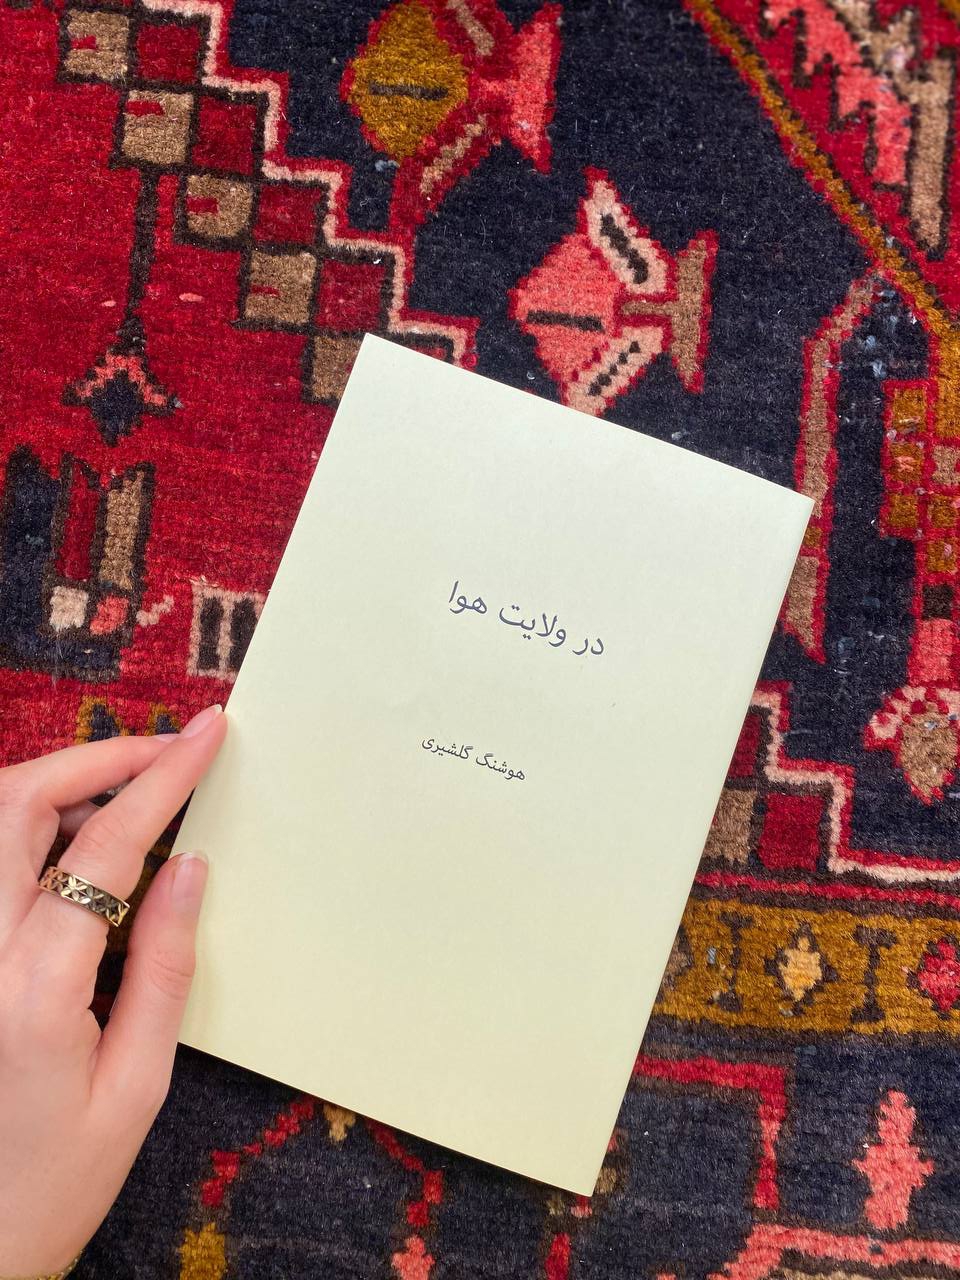 در ولایت هوا
هوشنگ گلشیری